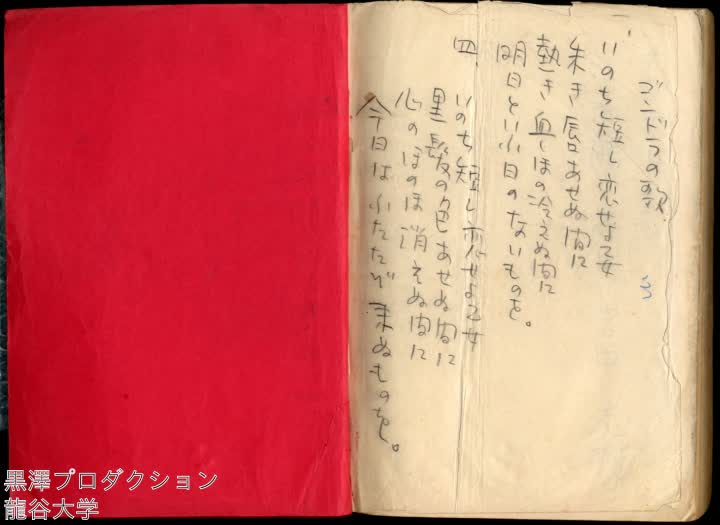 ゴンドラの歌
一、
いのち短し恋せよ乙女
朱き唇あせぬ間に
熱き血しほの冷えぬ間に
明日といふ日のないものを。
四、
いのち短し恋せよ乙女
黒髪の色あせぬ間に
心のほのほ消えぬ間に
今日はふたたび来ぬものを。
黒澤プロダクション
龍谷大学